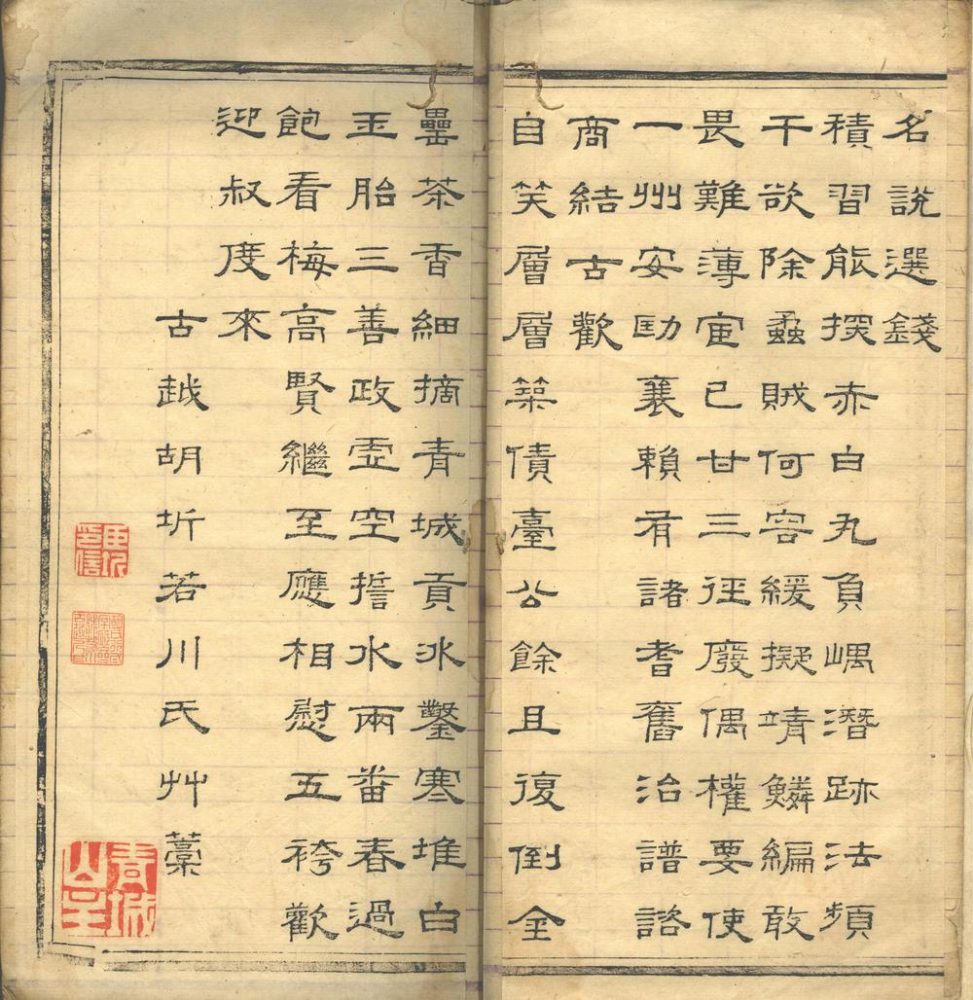 名說選錢
積習能探赤白丸負嵎潛跡法頻
干欲除蟊賊何容緩擬靖鱗編敢
畏難薄宦已甘三徑廢偶權要使
一州安劻襄賴有諸耆舊洽譜諮
商結古歡
自笑層層築債臺公餘且復倒金
罍茶香細摘青城貢冰鑿寒堆白
玉胎三善政虛空誓水兩番春過
飽看梅高賢繼至應相慰五袴歡
迎叔度來
古越胡圻若川氏艸藁